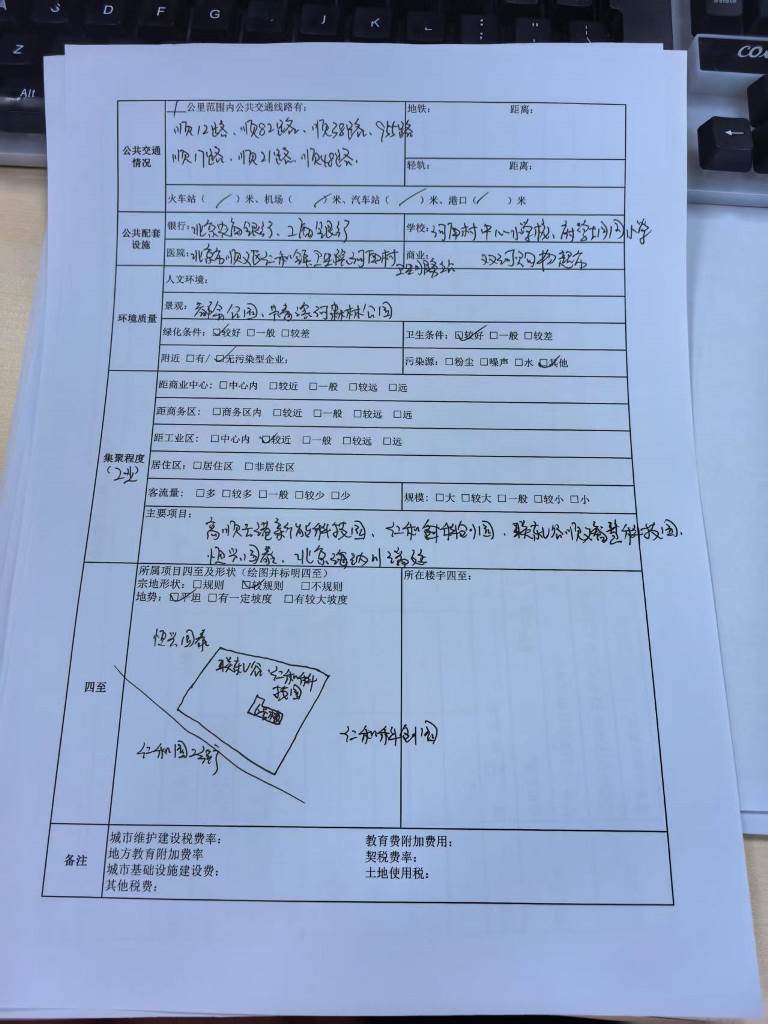 Z
Alt
D
F
G
J
K
L
1公里范围内公共交通线路有:
地铁: 距离:
顺12路、顺82路、顺38路、955路
顺17路、顺21路、顺48路.
公共交通
情况
轻轨: 距离:
火车站( / )米、机场( / )米、汽车站( / )米、港口( / )米
公共配套
设施
银行:北京农商银行、工商银行
学校:河南村中心小学校、
医院:北京市顺义区仁和镇卫生院河南村
卫生服务站
商业: 双河购物超市
环境质量
人文环境:
景观: 公园、森林公园
绿化条件: ☑较好 □一般 □较差
卫生条件: ☑较好 □一般 □较差
附近 □有/☑无污染型企业:
污染源: □粉尘 □噪声 □水 ☑其他
集聚程度
(工业)
距商业中心: □中心内 □较近 □一般 □较远 □远
距商务区: □商务区内 □较近 □一般 □较远 □远
距工业区: □中心内 ☑较近 □一般 □较远 □远
居住区: □居住区 □非居住区
客流量: □多 □较多 □一般 □较少 □少
规模: □大 □较大 □一般 □较小 □小
主要项目:
科技园、仁和科创园、联东U谷顺义智慧科技园.
恒兴国泰、北京海纳川瑞延
四至
所属项目四至及形状(绘图并标明四至)
所在楼宇四至:
宗地形状: □规则 ☑较规则 □不规则
地势: ☑平坦 □有一定坡度 □有较大坡度
恒兴国泰
联东U谷·仁和科
技园
仁和科创园
仁和园二街
备注
城市维护建设税费率:
教育费附加费用:
地方教育附加费率
契税费率:
城市基础设施建设费:
土地使用税:
其他税费: